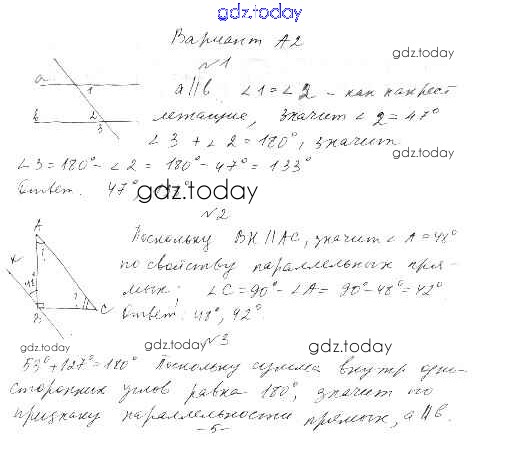 gdz.today
Вариант А2
gdz.today
№1
a
1
a||b ∠1=∠2 - как накрест
b
2
3
лежащие, значит ∠2=47°
∠3+∠2=180°, значит
gdz.today
∠3=180°-∠2=180°-47°=133°
Ответ: 47°,
gdz.today
№2
A
?
Поскольку BK||AC, значит ∠A=48°
K
по свойству параллельных пря-
48°
мых. ∠C=90°-∠A=90°-48°=42°
?
C
B
Ответ: 48°, 42°
gdz.today
gdz.today
№3
gdz.today
53°+127°=180° Поскольку сумма внутр. одно-
сторонних углов равна 180°, значит по
признаку параллельности прямых, a||b.
-5-